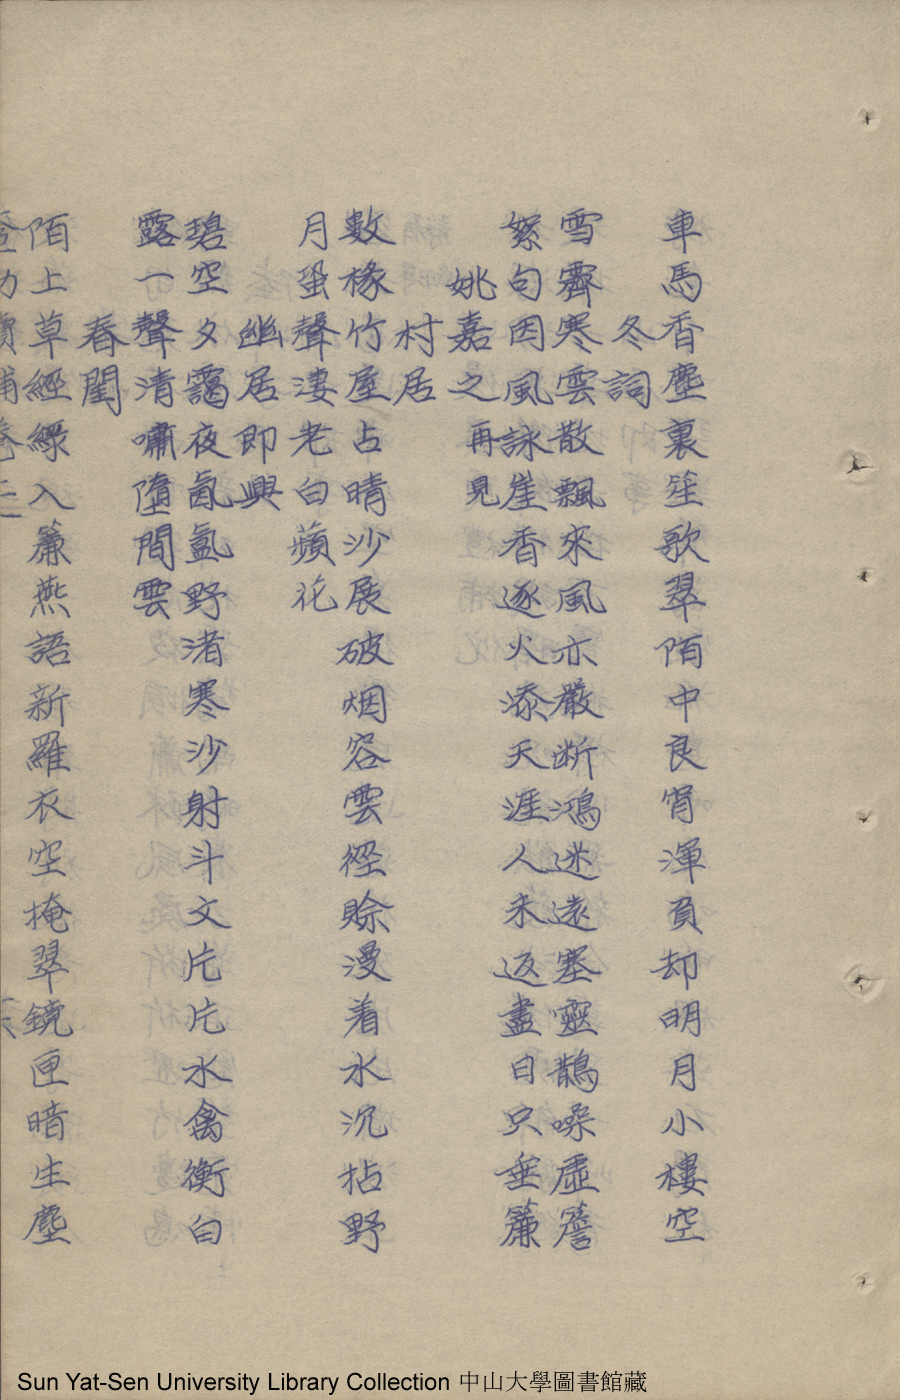 車馬香塵裏笙歌翠陌中良宵渾負却明月小樓空
冬詞
雪霽寒雲散飄來風亦嚴斷鴻迷遠塞靈鵲噪虛簷
絮句因風詠崖香逐火添天涯人未返盡日只垂簾
姚嘉之再見
村居
數椽竹屋占晴沙展破烟容雲徑賒漫着水沉拈野
月蛩聲淒老白蘋花
幽居即興
碧空夕靄夜氤氳野渚寒沙射斗文片片水禽衡白
露一聲清嘯墮間雲
春閨
陌上草經綠入簾燕語新羅衣空掩翠鏡匣暗生塵
Sun Yat-Sen University Library Collection 中山大學圖書館藏